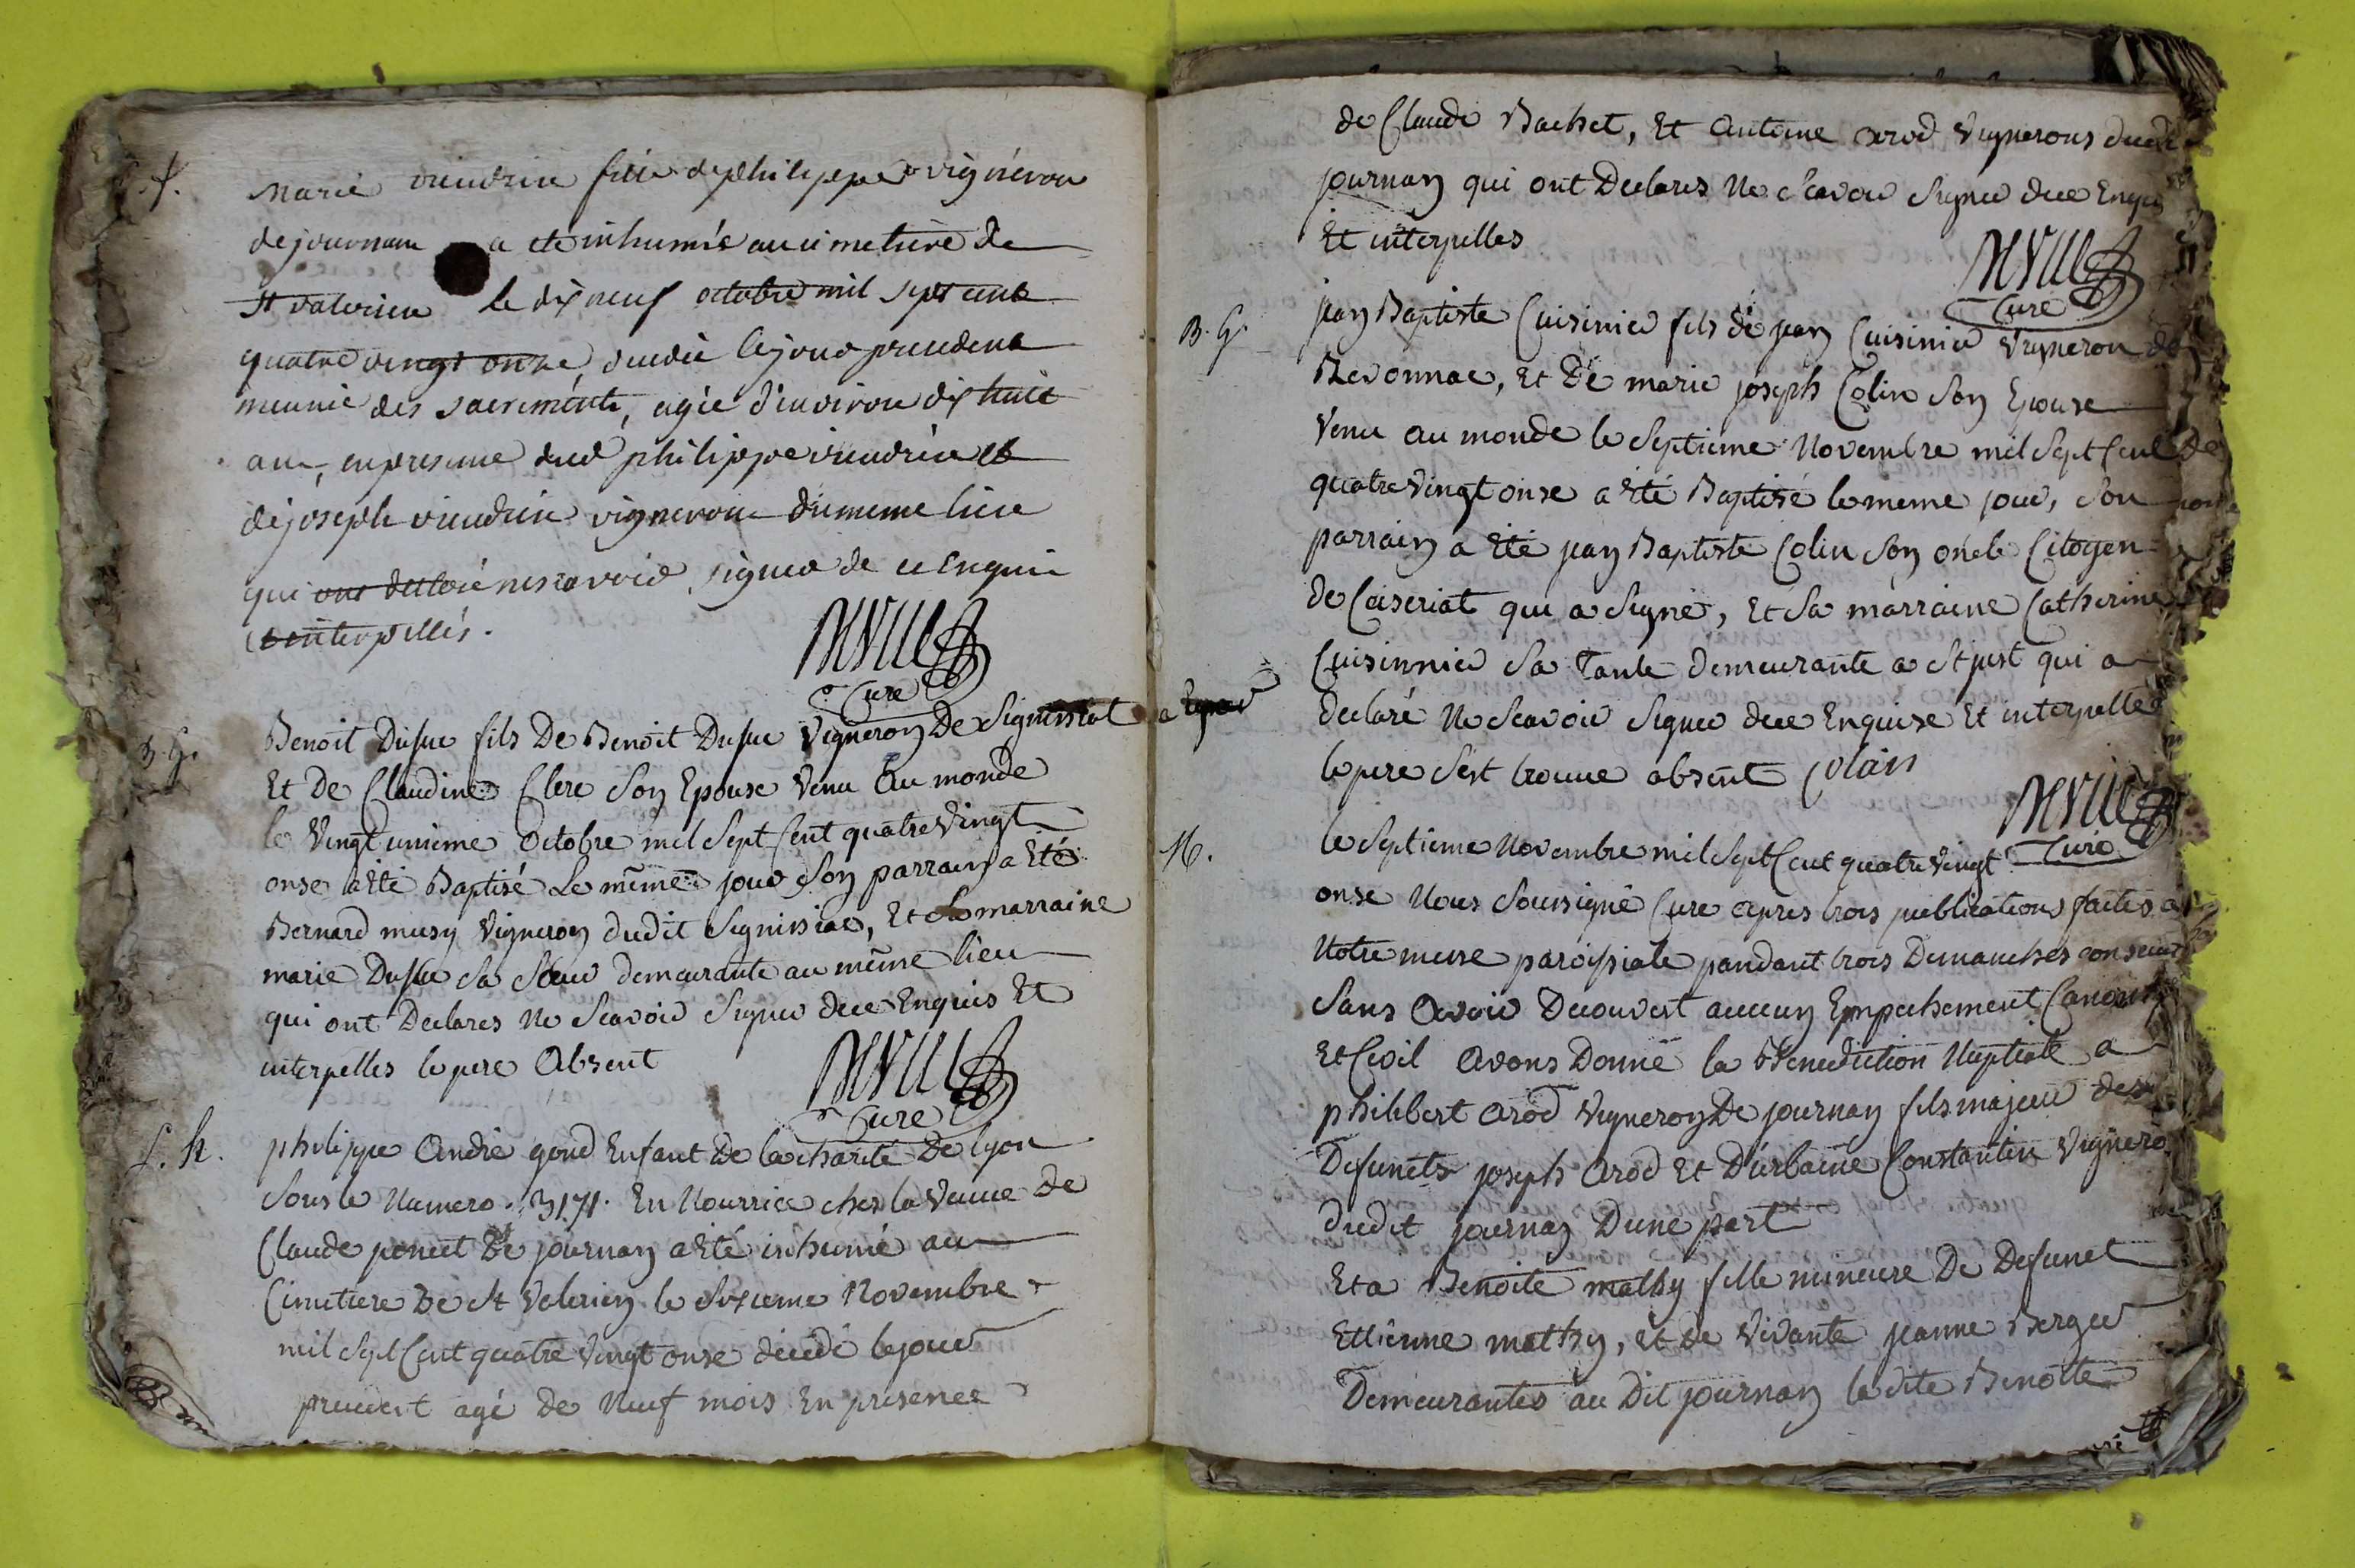 S. f.
Marie vieudrin fille de philippe vigneron
de journan a ete inhumée au cimetiere de
st valerien le dix neuf octobre mil sept cent
quatre vingt onze, decedée le jour precedent
munie des sacrements, agée d'environ dix huit
ans, en presence dud philippe vieudrin et
de joseph vieudrin vigneron du meme lieu
qui ont declaré ne scavoir signer de ce enquis
et interpellés.
Neville
Curé
B. G.
Benoit Dufur fils De Benoit Dufur Vigneron De Signissiat
Et De Claudine Clere Son Epouse Venu Au monde
le Vingt unieme Octobre mil Sept Cent quatre Vingt
onse a Eté Baptisé Le même jour Son parrain a Eté
Bernard musy Vigneron dudit Signissiat, Et Sa marraine
marie Dufur Sa Sœur demeurante au même lieu
qui ont Declarés Ne Scavoir Signer dece Enquis Et
interpelles le pere Absent
Neville
Curé
S. h.
philippe André gond Enfant De la charité De lyon
Sous le Numero. 3171. En Nourrice chez la Veuve de
Claude poncet De journan a Eté inhumé au
Cimetiere De St Valerien le Sixieme Novembre
mil Sept Cent quatre Vingt onse decedé le jour
precedent agé de Neuf mois En presence
de Claude Bachet, Et Antoine arod Vignerons dudit
journan qui ont Declarés Ne Scavoir Signer dece Enquis
Et interpelles
Neville
Curé
B. G.
jean Baptiste Cuisinier fils de jean Cuisinier Vigneron de
Revonnac, Et De marie joseph Colin Son Epouse
Venu au monde le Septieme Novembre mil Sept Cent
quatre Vingt onse a Eté Baptisé le meme jour, Son
parrain a Eté jean Baptiste Colin Son oncle Citoyen
de Ceiseriat qui a Signé, Et Sa marraine Catherine
Cuisinnier Sa Tante Demeurante a St just qui a
Declaré Ne Scavoir Signer dece Enquise Et interpellée
le pere S'est trouvé absent Colain
Neville
Curé
M.
le Septieme Novembre mil Sept Cent quatre Vingt
onse Nous Soussigné Curé apres trois publications faites a
Notre messe paroissiale pandant trois Dimanches
Sans Avoir Decouvert aucun Empechement
Et Civil Avons Donné la Benediction Nuptiale a
philibert Arod Vigneron De journan fils majeur des
Defuncts joseph Arod Et D'urbaine Constantin
dudit journan Dune part
Et a Benoite mathy fille mineure De Defunct
Ettienne mathy, et de Vivante jeanne Berger
Demeurantes au Dit journan ladite Benoite